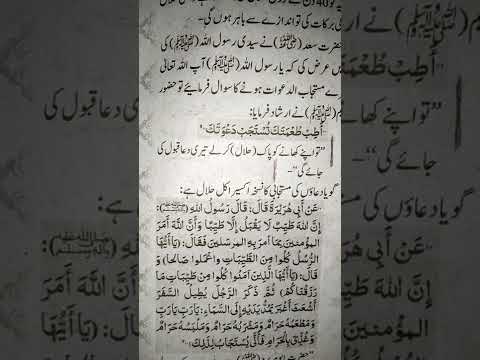 یہ 40 دن
کی برکات کی تو اندازے سے باہر ہوں گی۔
حضرت سعد (رضی اللہ عنہ) نے سیدی رسول اللہ (ﷺ) کی
میں عرض کی کہ یا رسول اللہ (ﷺ) آپ اللہ تعالٰی
مستجاب الدعوات ہونے کا سوال فرمائیے تو حضور
(ﷺ) نے ارشاد فرمایا:
"أَطِبْ طُعْمَتَكَ تُسْتَجَبْ دَعْوَتُكَ"
"تو اپنے کھانے کو پاک (حلال) کر لے تیری دعا قبول کی
جائے گی"۔
گویا دعاؤں کی مستجابی کا نسخہ اکسیر اکل حلال ہے:
عَنْ أَبِي هُرَيْرَةَ قَالَ: قَالَ رَسُولُ اللهِ (ﷺ):
إِنَّ اللهَ طَيِّبٌ لَا يَقْبَلُ إِلَّا طَيِّبًا وَأَنَّ اللهَ أَمَرَ
المؤمنين بما أمر به المرسلين فَقَالَ: (يَا أَيُّهَا
الرُّسُلُ كُلُوا مِنَ الطَّيِّبَاتِ وَاعْمَلُوا صَالِحًا) وَ
قَالَ: (يَا أَيُّهَا الَّذِينَ آمَنُوا كُلُوا مِنْ طَيِّبَاتِ مَا
رَزَقْنَاكُمْ) ثُمَّ ذَكَرَ الرَّجُلَ يُطِيلُ السَّفَرَ
أَشْعَثَ أَغْبَرَ يَمُدُّ يَدَيْهِ إِلَى السَّمَاءِ: يَا رَبِّ يَا رَبِّ
وَمَطْعَمُهُ حَرَامٌ وَمَشْرَبُهُ حَرَامٌ وَمَلْبَسُهُ حَرَامٌ
وَغُذِّيَ بِالْحَرَامِ فَأَنَّى يُسْتَجَابُ لِذَلِكَ"